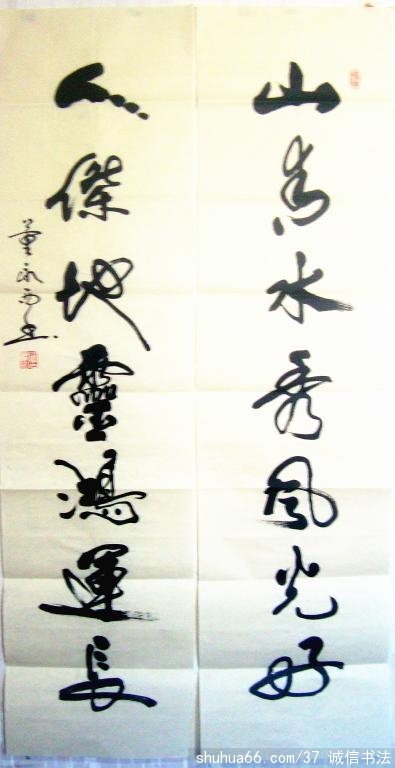 山青水秀风光好
人傑地靈鴻運長
董永西书
shuhua66.com/37 诚信书法